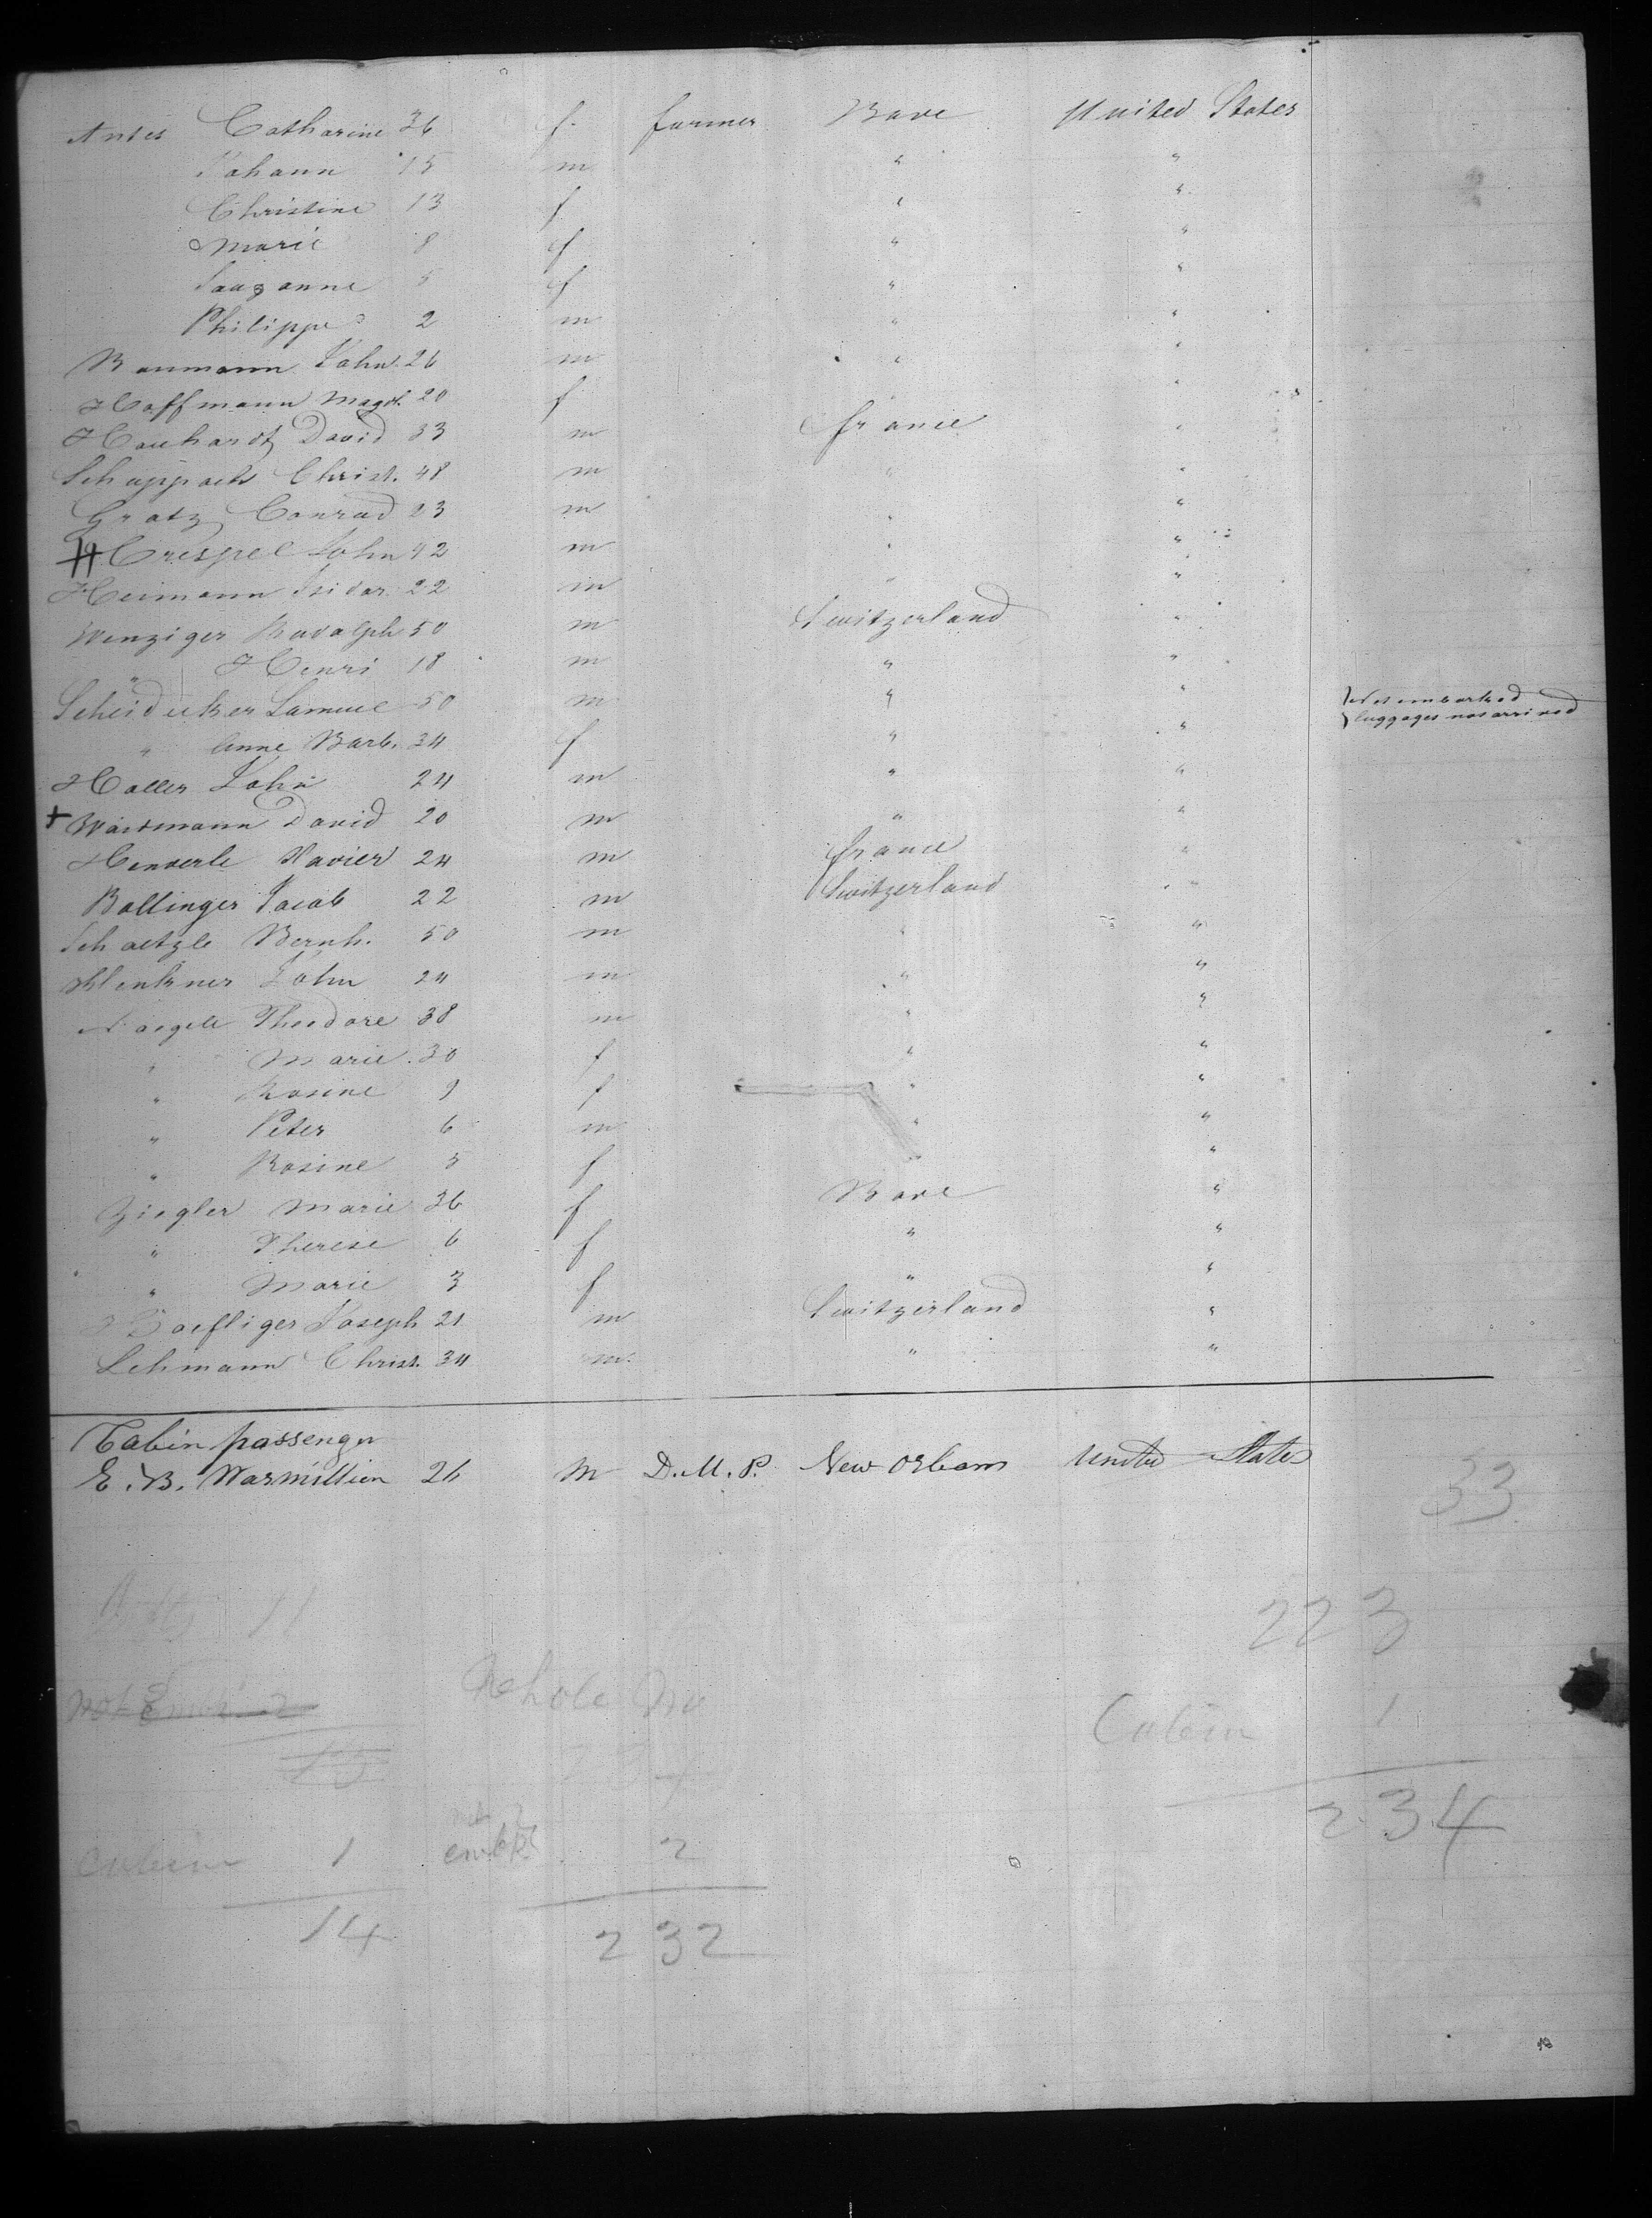 Antes Catharine 36 f. farmer Bave United States
Johann 15 m " "
Christine 13 f " "
Marie 8 f " "
Sauzanne 5 f " "
Philippe 2 m " "
Baumann John. 26 m " "
Hoffmann Magd. 20 f "
Hauhardt David 33 m france "
Schuppach Christ. 48 m " "
Gratz Conrad 23 m " "
Crespel John 42 m " "
Heimann Isidor. 22 m " "
Wenziger Rudolph 50 m Switzerland "
" Henri 18 m " "
Scheidecker Samuel 50 m " " Not embarked
" Anne Barb. 34 f " " luggages not arrived
Haller John 24 m " "
+ Waidmann David 20 m " "
Henderle Xavier 24 m france "
Bollinger Jacob 22 m Switzerland "
Schaetzle Bernh. 50 m " "
Klenkner John 24 m " "
Naegele Theodore 38 m " "
" Marie 30 f " "
" Rosine 9 f " "
" Peter 6 m " "
" Rosine 3 f " "
Ziegler Marie 36 f Bave "
" Therese 6 f " "
" Marie 3 f " "
Haefliger Joseph 21 m Switzerland "
Lehmann Christ. 34 m " "
Cabin passenger
E. B. Warmillion 26 m D.M.P. New Orleans United States
33
11 223
Not Whole No Cabin 1
234
234
Cabin 1 embkd 2
14 232